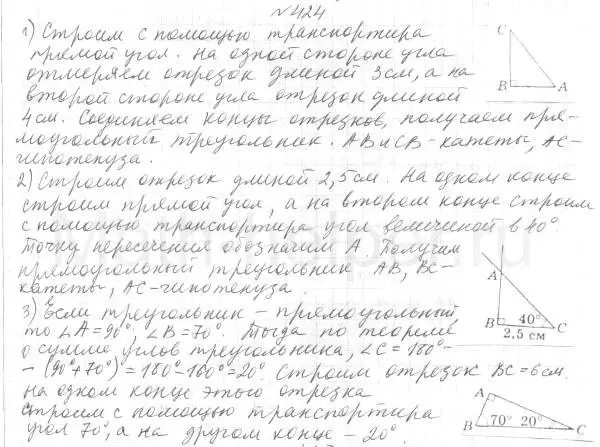 №424
1) Строим с помощью транспортира
прямой угол. На одной стороне угла
отмеряем отрезок длиной 3см, а на
второй стороне угла отрезок длиной
4см. Соединяем концы отрезков, получаем пря-
моугольный треугольник. AB и CB - катеты, AC -
гипотенуза.
C
B
A
2) Строим отрезок длиной 2,5см. На одном конце
строим прямой угол, а на втором конце строим
с помощью транспортира угол величиной в 40°.
Точку пересечения обозначим A. Получим
прямоугольный треугольник. AB, BC -
катеты, AC - гипотенуза.
A
B 40° C
2,5 см
3) Если треугольник - прямоугольный,
то ∠A = 90°, ∠B = 70°. Тогда по теореме
о сумме углов треугольника, ∠C = 180° -
- (90° + 70°) = 180° - 160° = 20°. Строим отрезок BC = 6см.
На одном конце этого отрезка
строим с помощью транспортира
угол 70°, а на другом конце - 20°
A
B 70° 20° C